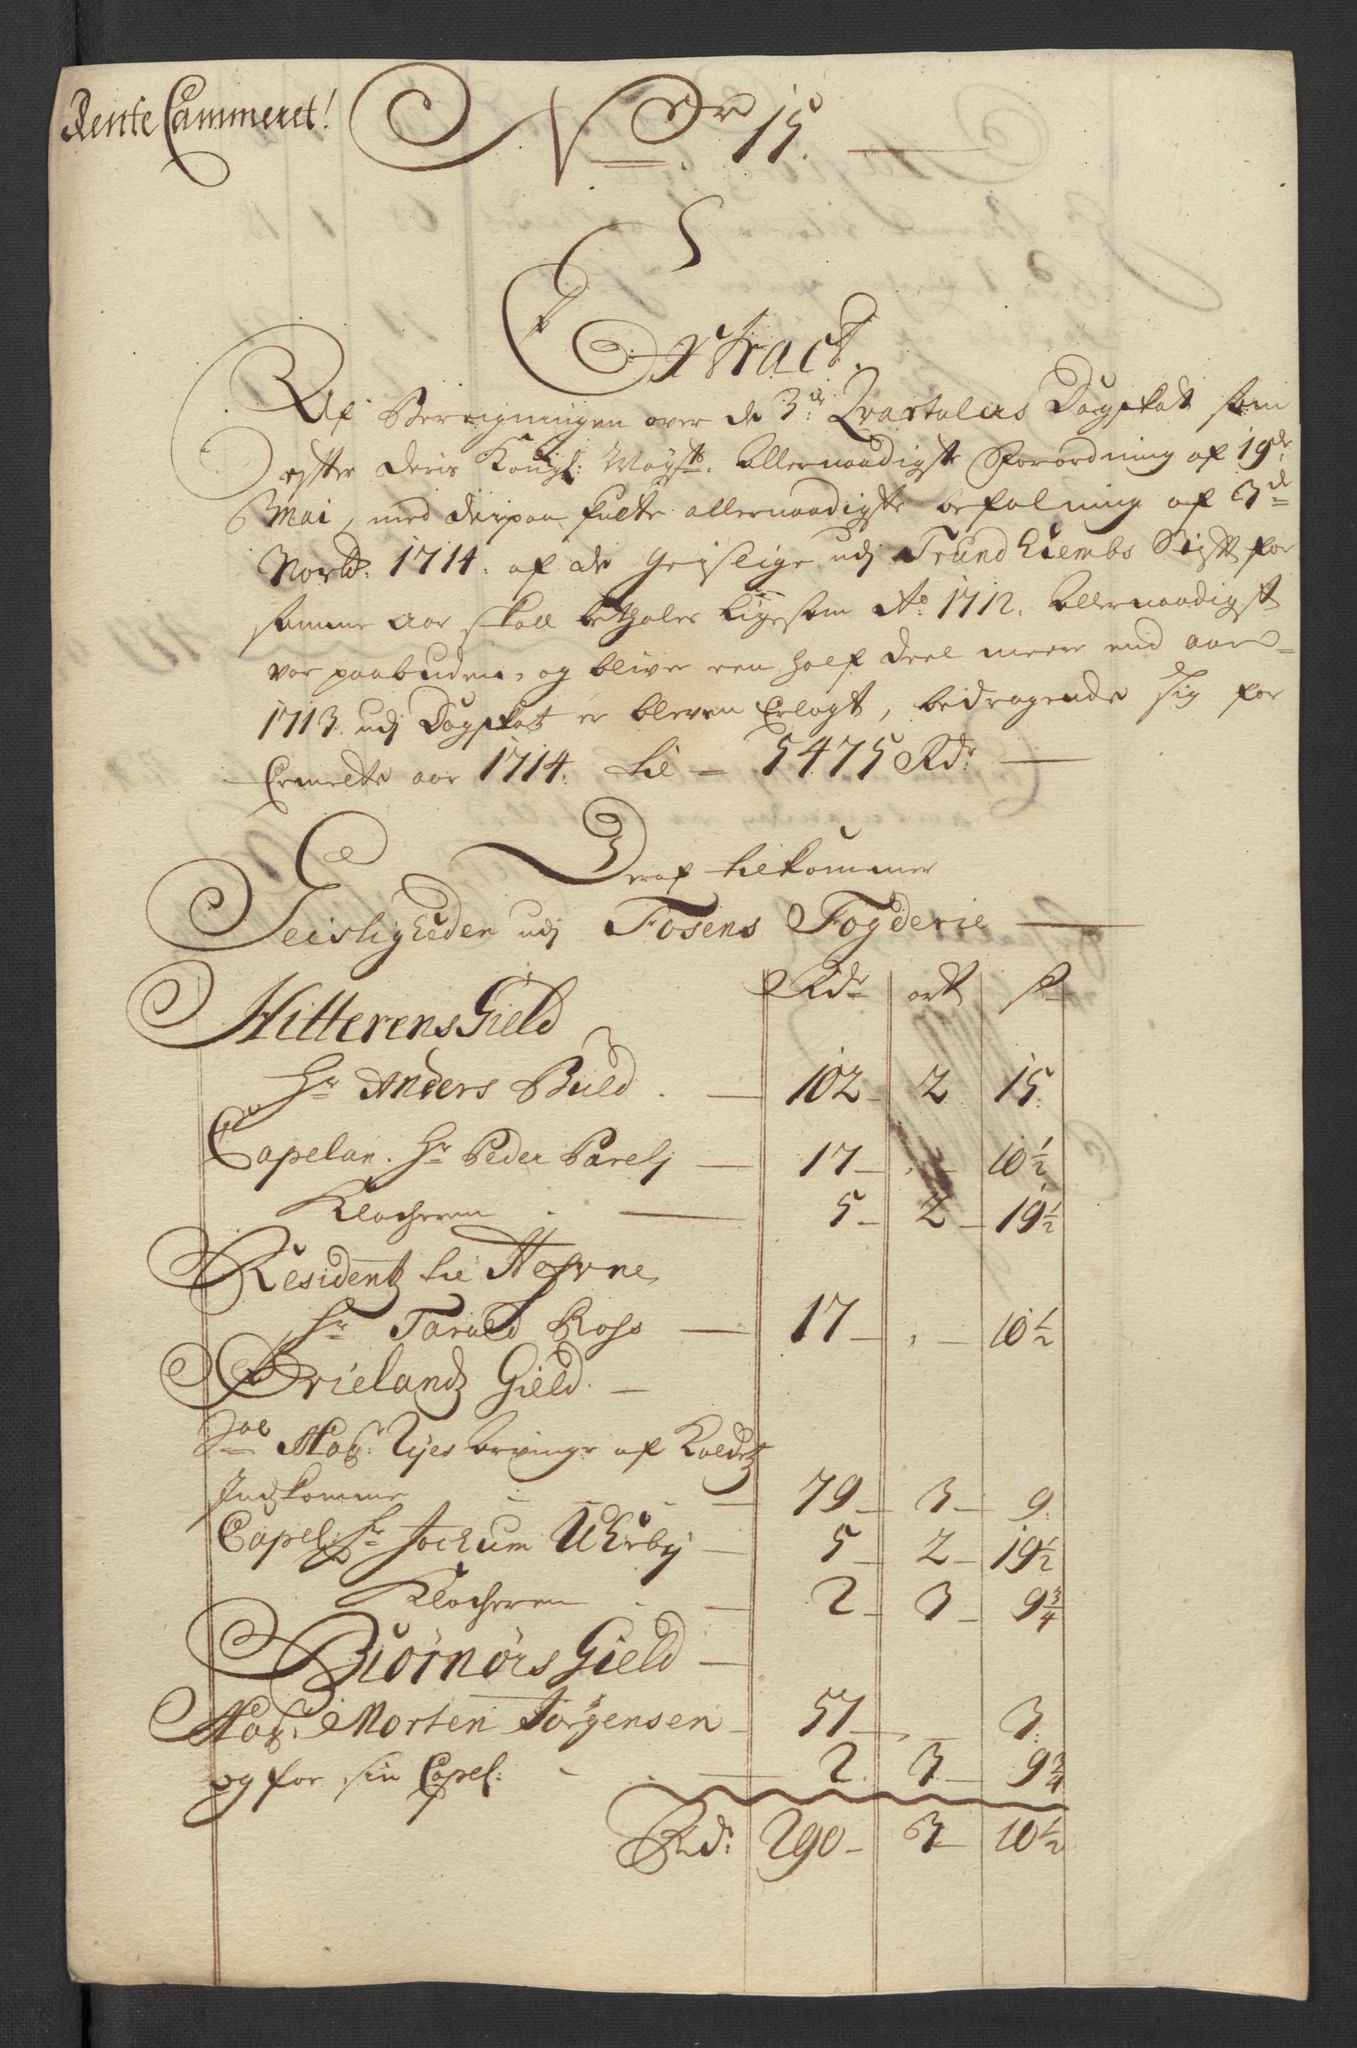 Rente Cammeret!
No 15.
Extract
Af Beregningen over de 3de Qvartalers Dagskat som
effter deris Kongl: Mayts: Allernaadigste Forordning af 19de
Mai, med derpaa fulte allernaadigste befalning af 3de
Novbr: 1714. af de Geislige udj Trundhiembs Stift for
samme aar skall betales ligesom Ao 1712. Allernaadigst
var paabuden, og bliver een half deel meere end aar
1713. udj Dagskatt er bleven Erlagt, bedragende sig for
Ermelte aar 1714. til — 5475 Rdr
Deraf tilkommer
Geisligheden udj Fosens Fogderie
Rdr ort s
Hitterens Gield
Hr Anders Buld . 102 2 15.
Capelan. Hr Peder Parelj 17 . 10½
Klocheren . 5 2 19½
Residentz til Hefne
Hr Tarald Ross 17 . 10½
Ørielandz Gield.
Sal Mag: Ujes af Kaldetz
Indkomme 79 3 9.
Capel: Hr Jochum Uhrbÿ 5 2 19½
Klocheren . 2 3 9¾
Biørnørs Gield
Mag: Morten Jørgensen 57 . 3.
og for sin Capel: 2 3 9¾
Rdr: 290 3 10½